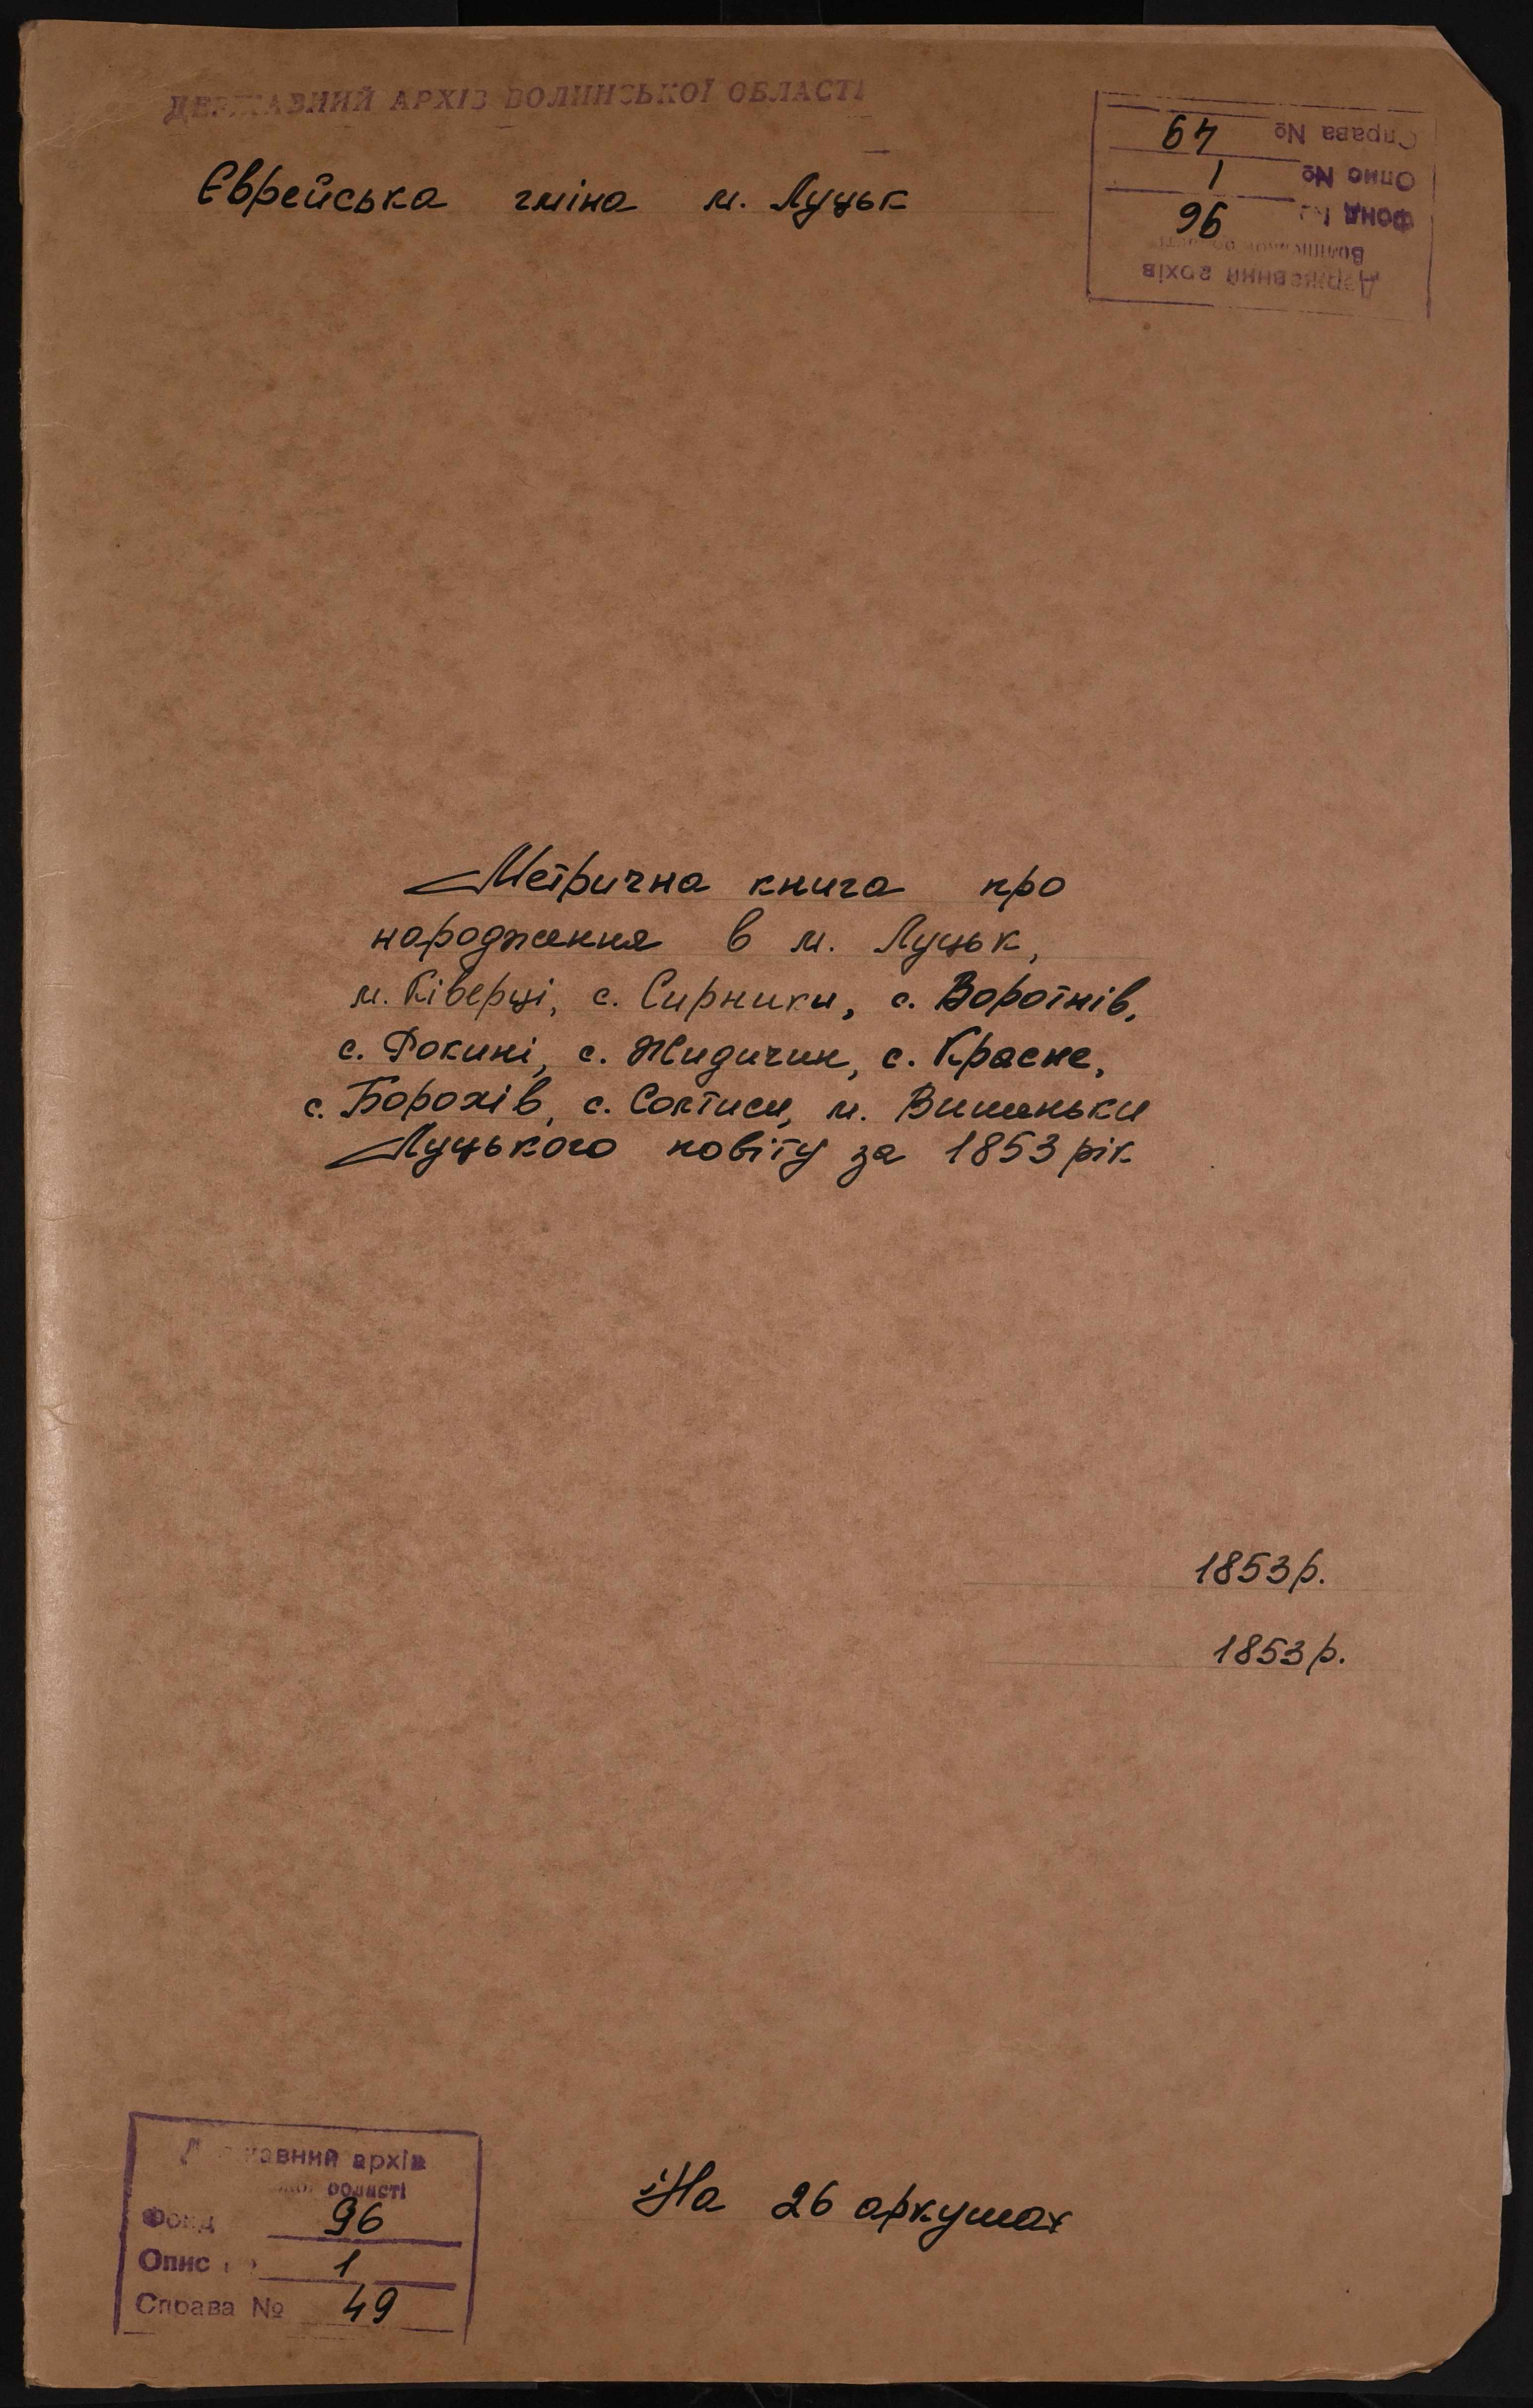 ДЕРЖАВНИЙ АРХІВ ВОЛИНСЬКОЇ ОБЛАСТІ
Справа № 49
Опис № 1
Фонд № 96
Волинської області
Державний архів
Єврейська гміна м. Луцьк
Метрична книга про
народження в м. Луцьк,
м. Ківерці, с. Сирники, с. Воротнів,
с. Рокині, с. Жидичин, с. Красне,
с. Борохів, с. м. Вишеньки
Луцького повіту за 1853 рік
1853 р.
1853 р.
На 26 аркушах
Державний архів
області
Фонд 96
Опис № 1
Справа № 49